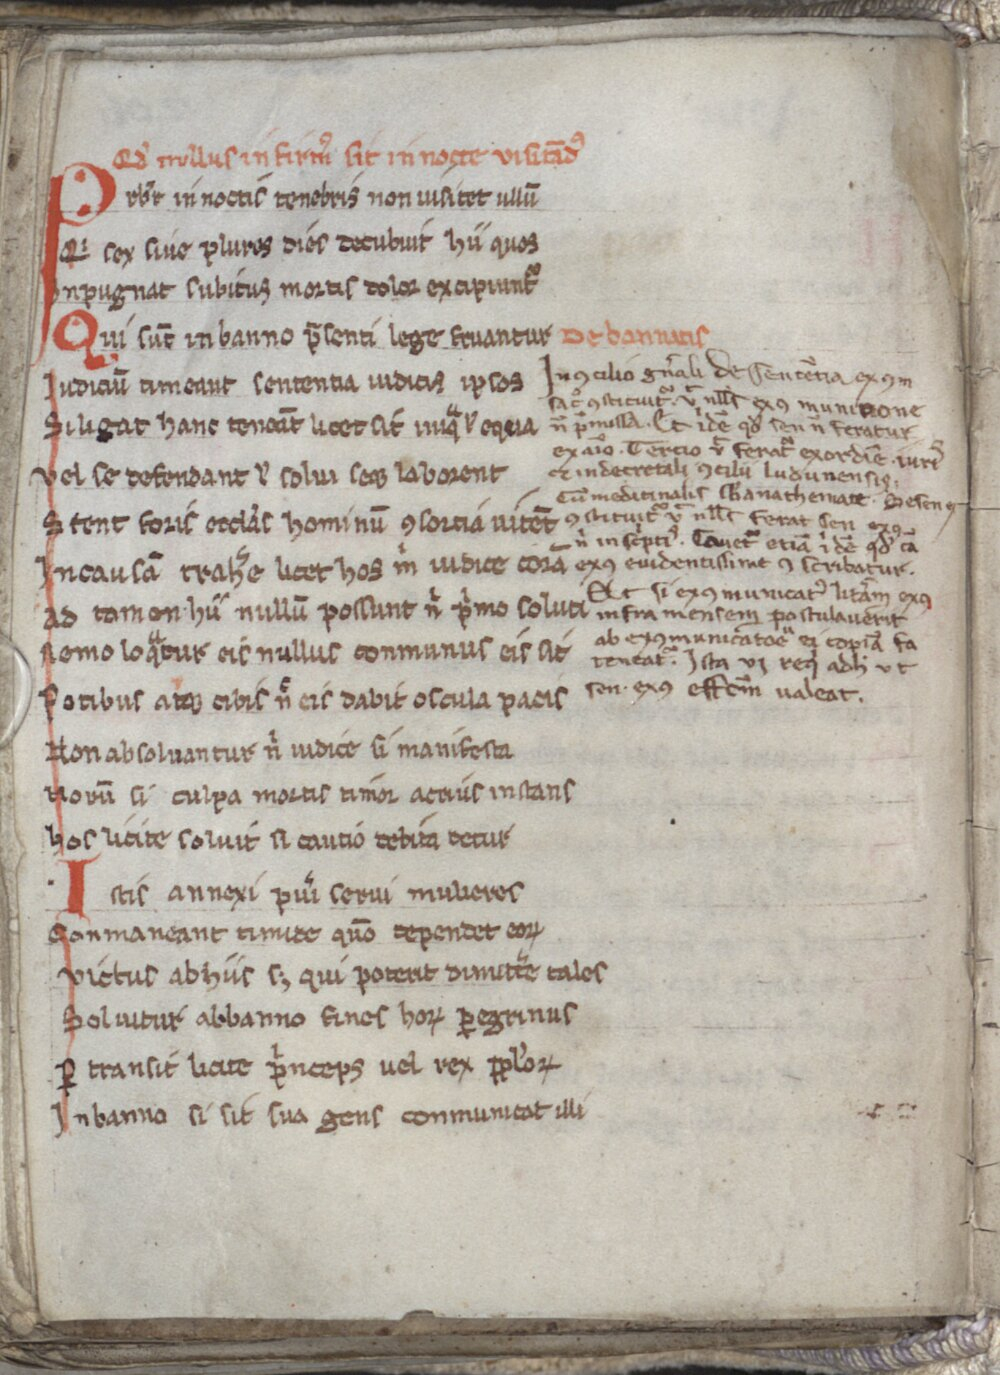 Qd' nullus infirm9 sit in nocte visitãd9
Prbr̃ in noctis tenebris non visitet ullũ
Qi sex sive plures dies decubuit hũc quos
Inpugnat subitus mortis dolor excipiunt᷑
Qui sũt in banno p̃senti lege fruantur De bannitis
Iudiciũ timeant sententia iudicis ipsos
Si ligat hanc teneãt licet sit iniq̃ ł equa
Vel se defendant ł solvi seq̷ laborent
Stent foris eccl'is hominũ 9sortia vitẽt
In causã trahe licet hos ñ iudice corã
Ad tamen hii nullũ possunt ñ p'mo soluti
Nemo loq̃tur eis nullus conmunus eis sit
Potibus atq̷ cibis ñ eis dabit oscula pacis
Non absolvantur ñ iudice si manifesta
Horũ si culpa mortis timor acrius instans
Hos licite solvit si cautio debita detur
Istis annexi pueri servi mulieres
Conmaneant timide quõ dependet eoꝝ
Victus ab hiis sꝫ qui poterit dimittẽ tales
Solvitur a banno fines hoꝝ peregrinus
Ꝑ transit licite p'nceps vel rex ppl'oꝝ
In banno si sit sua gens conmunicat illi
In 9cilio gñali De Sentẽtia ex9m
ñ p̃missa. Et idẽ qd' sen ñ feratur
ex aĩo. Tercio ỹ ferat᷑ ex ordiẽ iuri'
et in decretali 9cilii ludunensis.
Cũ medicinalis sł anathemate. De sen 9
9stituit᷑ ỹ nllł ferat sen ex9
ñ in sc'pti'. Cavet᷑ etiã idẽ qd' cã
ex9 evidentissime 9scribatur.
Et si ex9municat9 litãm ex9
infra mensem postulaverit
ab ex9municatoẽ ei copiã fa
teneat᷑. Ista vi req' adh' ut
sen. ex9 effcm̃ valeat.